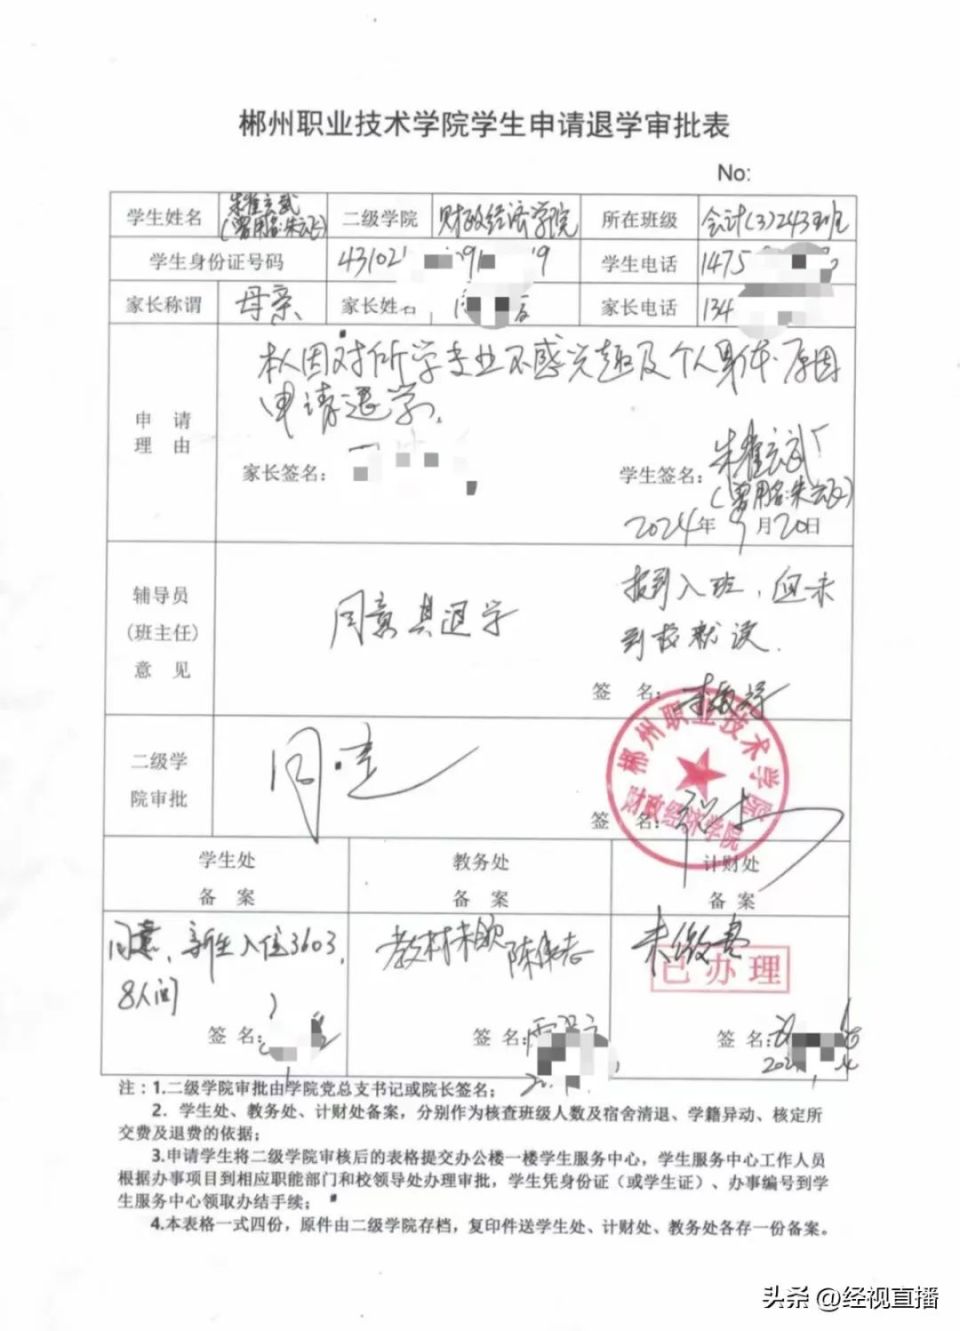 郴州职业技术学院学生申请退学审批表
No:
学生姓名 朱雀玄武 (曾用名:朱云飞) 二级学院 财政经济学院 所在班级 会计(3)243班
学生身份证号码 43102 9 学生电话 1475
家长称谓 母亲 家长姓名 家长电话 134
申请
理由
本人因对所学专业不感兴趣及个人身体原因
申请退学。
家长签名: 学生签名: 朱雀玄武
(曾用名:朱云飞)
2024年9月20日
辅导员
(班主任)
意见
同意其退学
报到入班,但未
到校就读.
签 名:
二级学
院审批
同意
签 名:
郴州职业技术学院
财政经济学院
学生处 教务处 计财处
备 案 备 案 备 案
同意,新生入住3603,
8人间
教材未领
未缴费
已办理
签 名: 签 名: 签 名:
注:1.二级学院审批由学院党总支书记或院长签名;
2. 学生处、教务处、计财处备案,分别作为核查班级人数及宿舍清退、学籍异动、核定所
交费及退费的依据;
3.申请学生将二级学院审核后的表格提交办公楼一楼学生服务中心,学生服务中心工作人员
根据办事项目到相应职能部门和校领导处办理审批,学生凭身份证(或学生证)、办事编号到学
生服务中心领取办结手续;
4.本表格一式四份,原件由二级学院存档,复印件送学生处、计财处、教务处各存一份备案。
头条 @经视直播